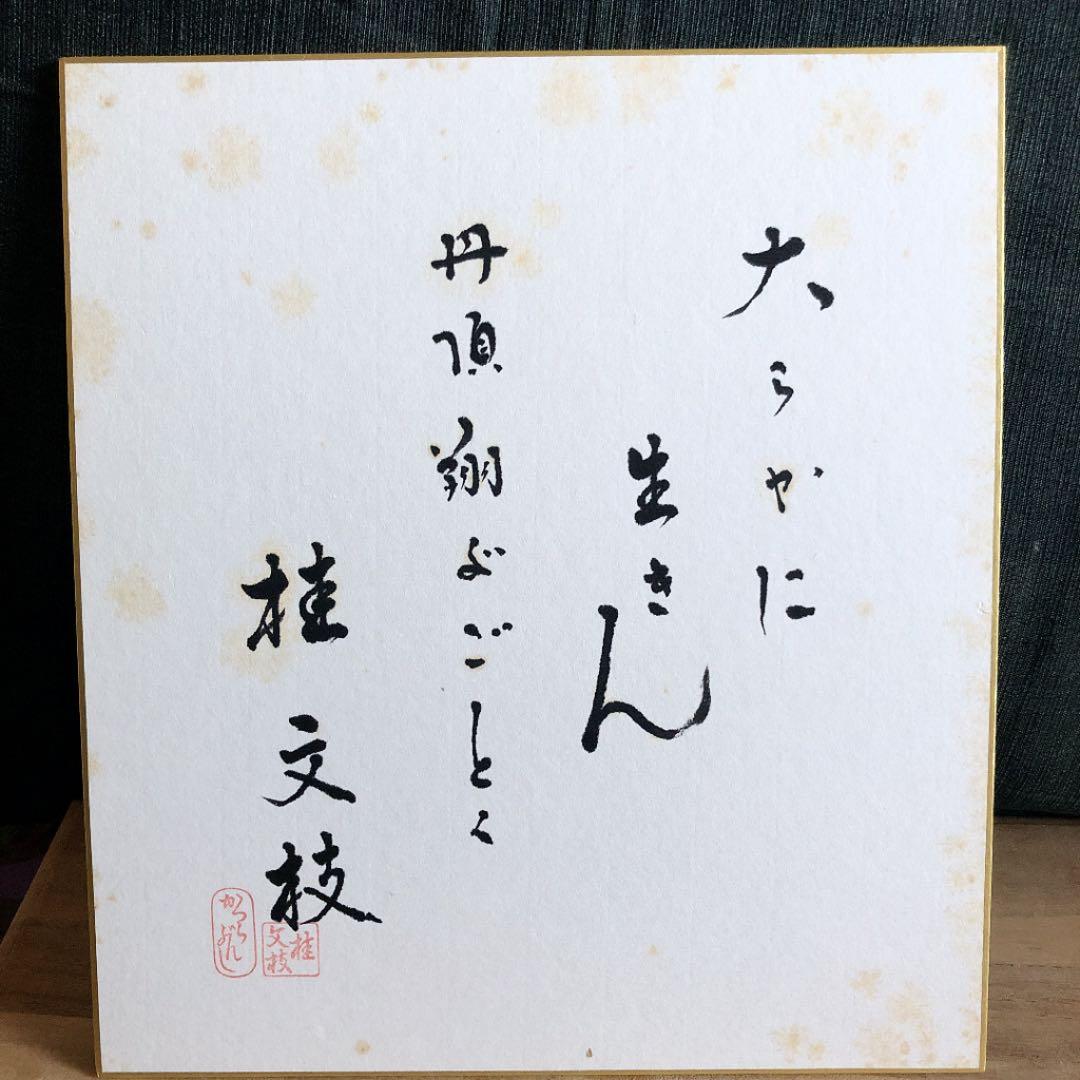 大らかに
生きん
丹頂翔ぶごとく
桂文枝
かつらぶんし
桂文枝